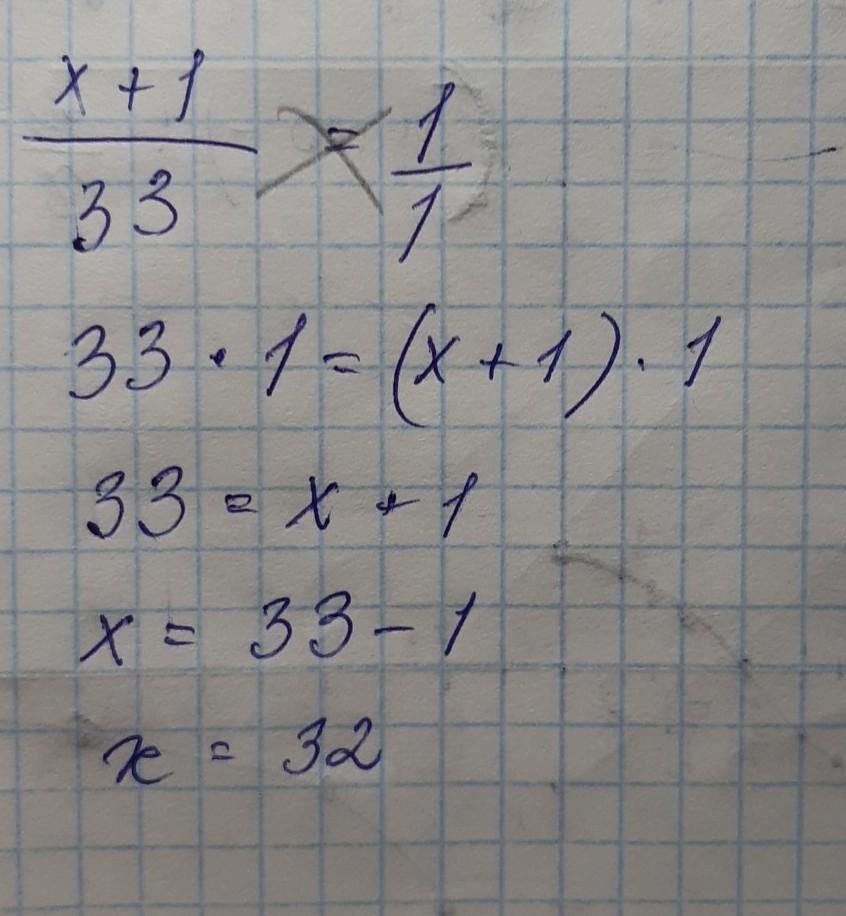 x + 1 / 33 = 1 / 1
33 · 1 = (x + 1) · 1
33 = x + 1
x = 33 - 1
x = 32